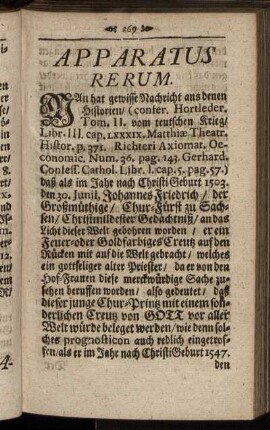 269
APPARATUS
RERUM.
MAn hat gewisse Nachricht aus denen
Historien/ (confer. Hortleder.
Tom. II. vom teutschen Krieg/
Libr. III. cap. LXXXIX. Matthiæ Theatr.
Histor. p. 371. Richteri Axiomat. Oe-
conomic. Num. 36. pag. 143. Gerhard.
Confess. Cathol. Libr. I. cap. 5. pag. 57.)
daß als im Jahr nach Christi Geburt 1503.
den 30. Junii, Johannes Friedrich/ der
Großmüthige/ Chur-Fürst zu Sach-
sen/ Christmildester Gedächtniß/ an das
Licht dieser Welt gebohren worden / er ein
Feuer-oder Goldfarbiges Creutz auf den
Rücken mit auf die Welt gebracht / welches
ein gottseliger alter Priester/ da er von den
Hof-Frauen diese merckwürdige Sache zu-
sehen beruffen worden / also gedeutet / daß
dieser junge Chur-Printz mit einem son-
derlichen Creutz von GOTT vor aller
Welt würde beleget werden/ wie denn sol-
ches prognosticon auch redlich eingetrof-
fen/ als er im Jahr nach Christi Geburt 1547.
den